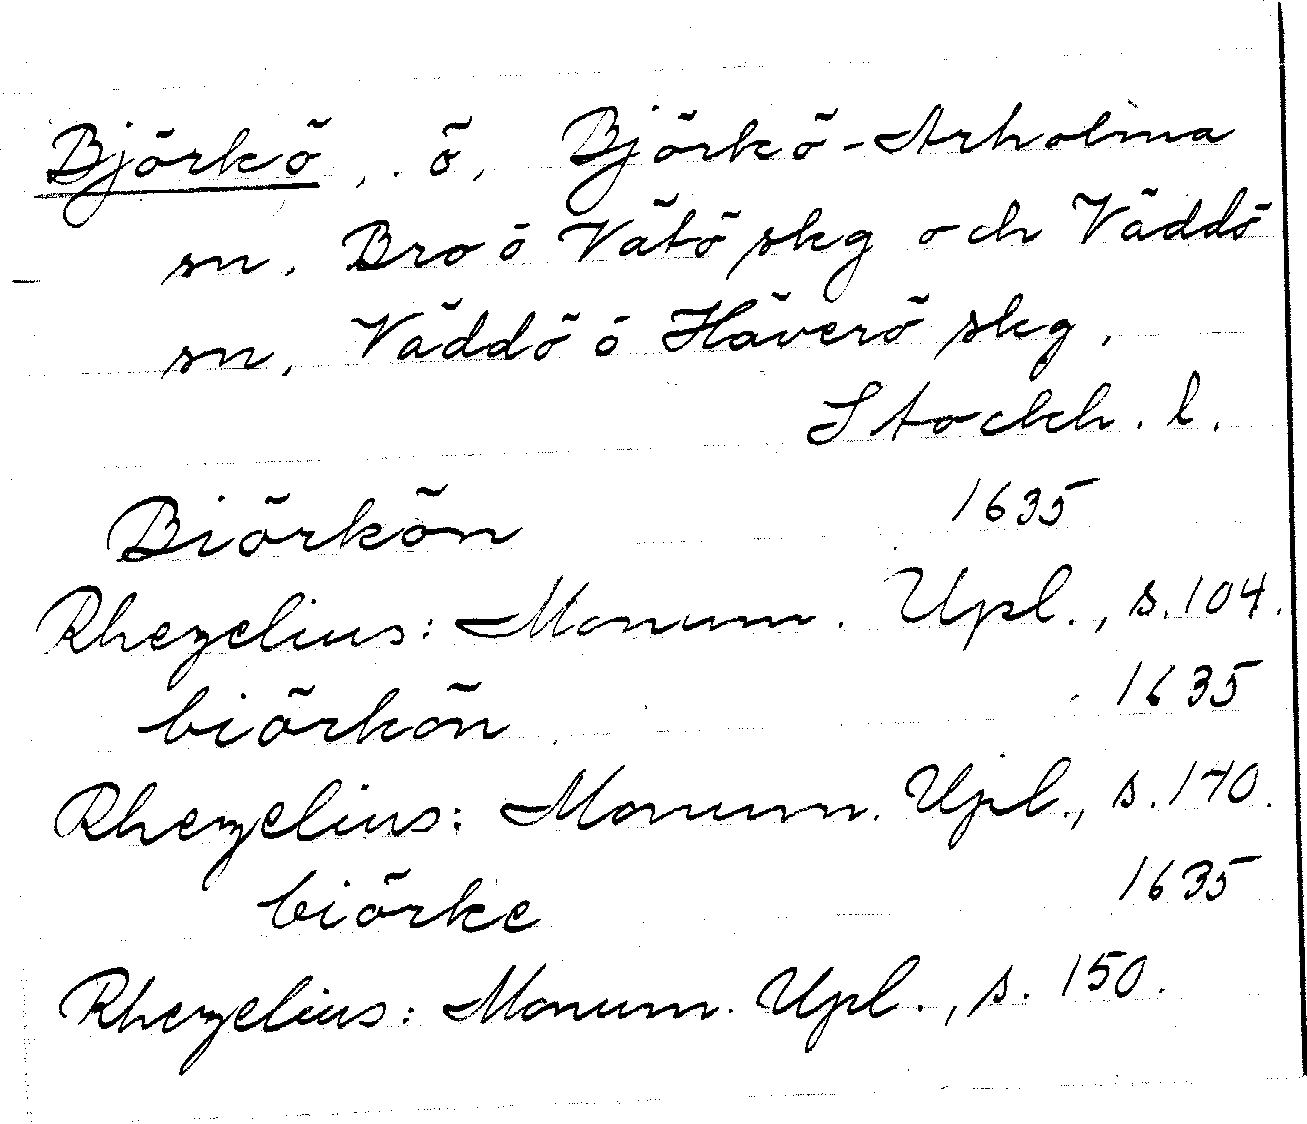 Björkö, ö, Björkö-Arholma
sn, Bro ö Vätö skg och Väddö
sn, Väddö ö Häverö skg,
Stockh. l.
Biörkön 1635
Rhezelius: Monum. Upl., s. 104.
biörkön 1635
Rhezelius: Monum. Upl., s. 140.
biörke 1635
Rhezelius: Monum. Upl., s. 150.